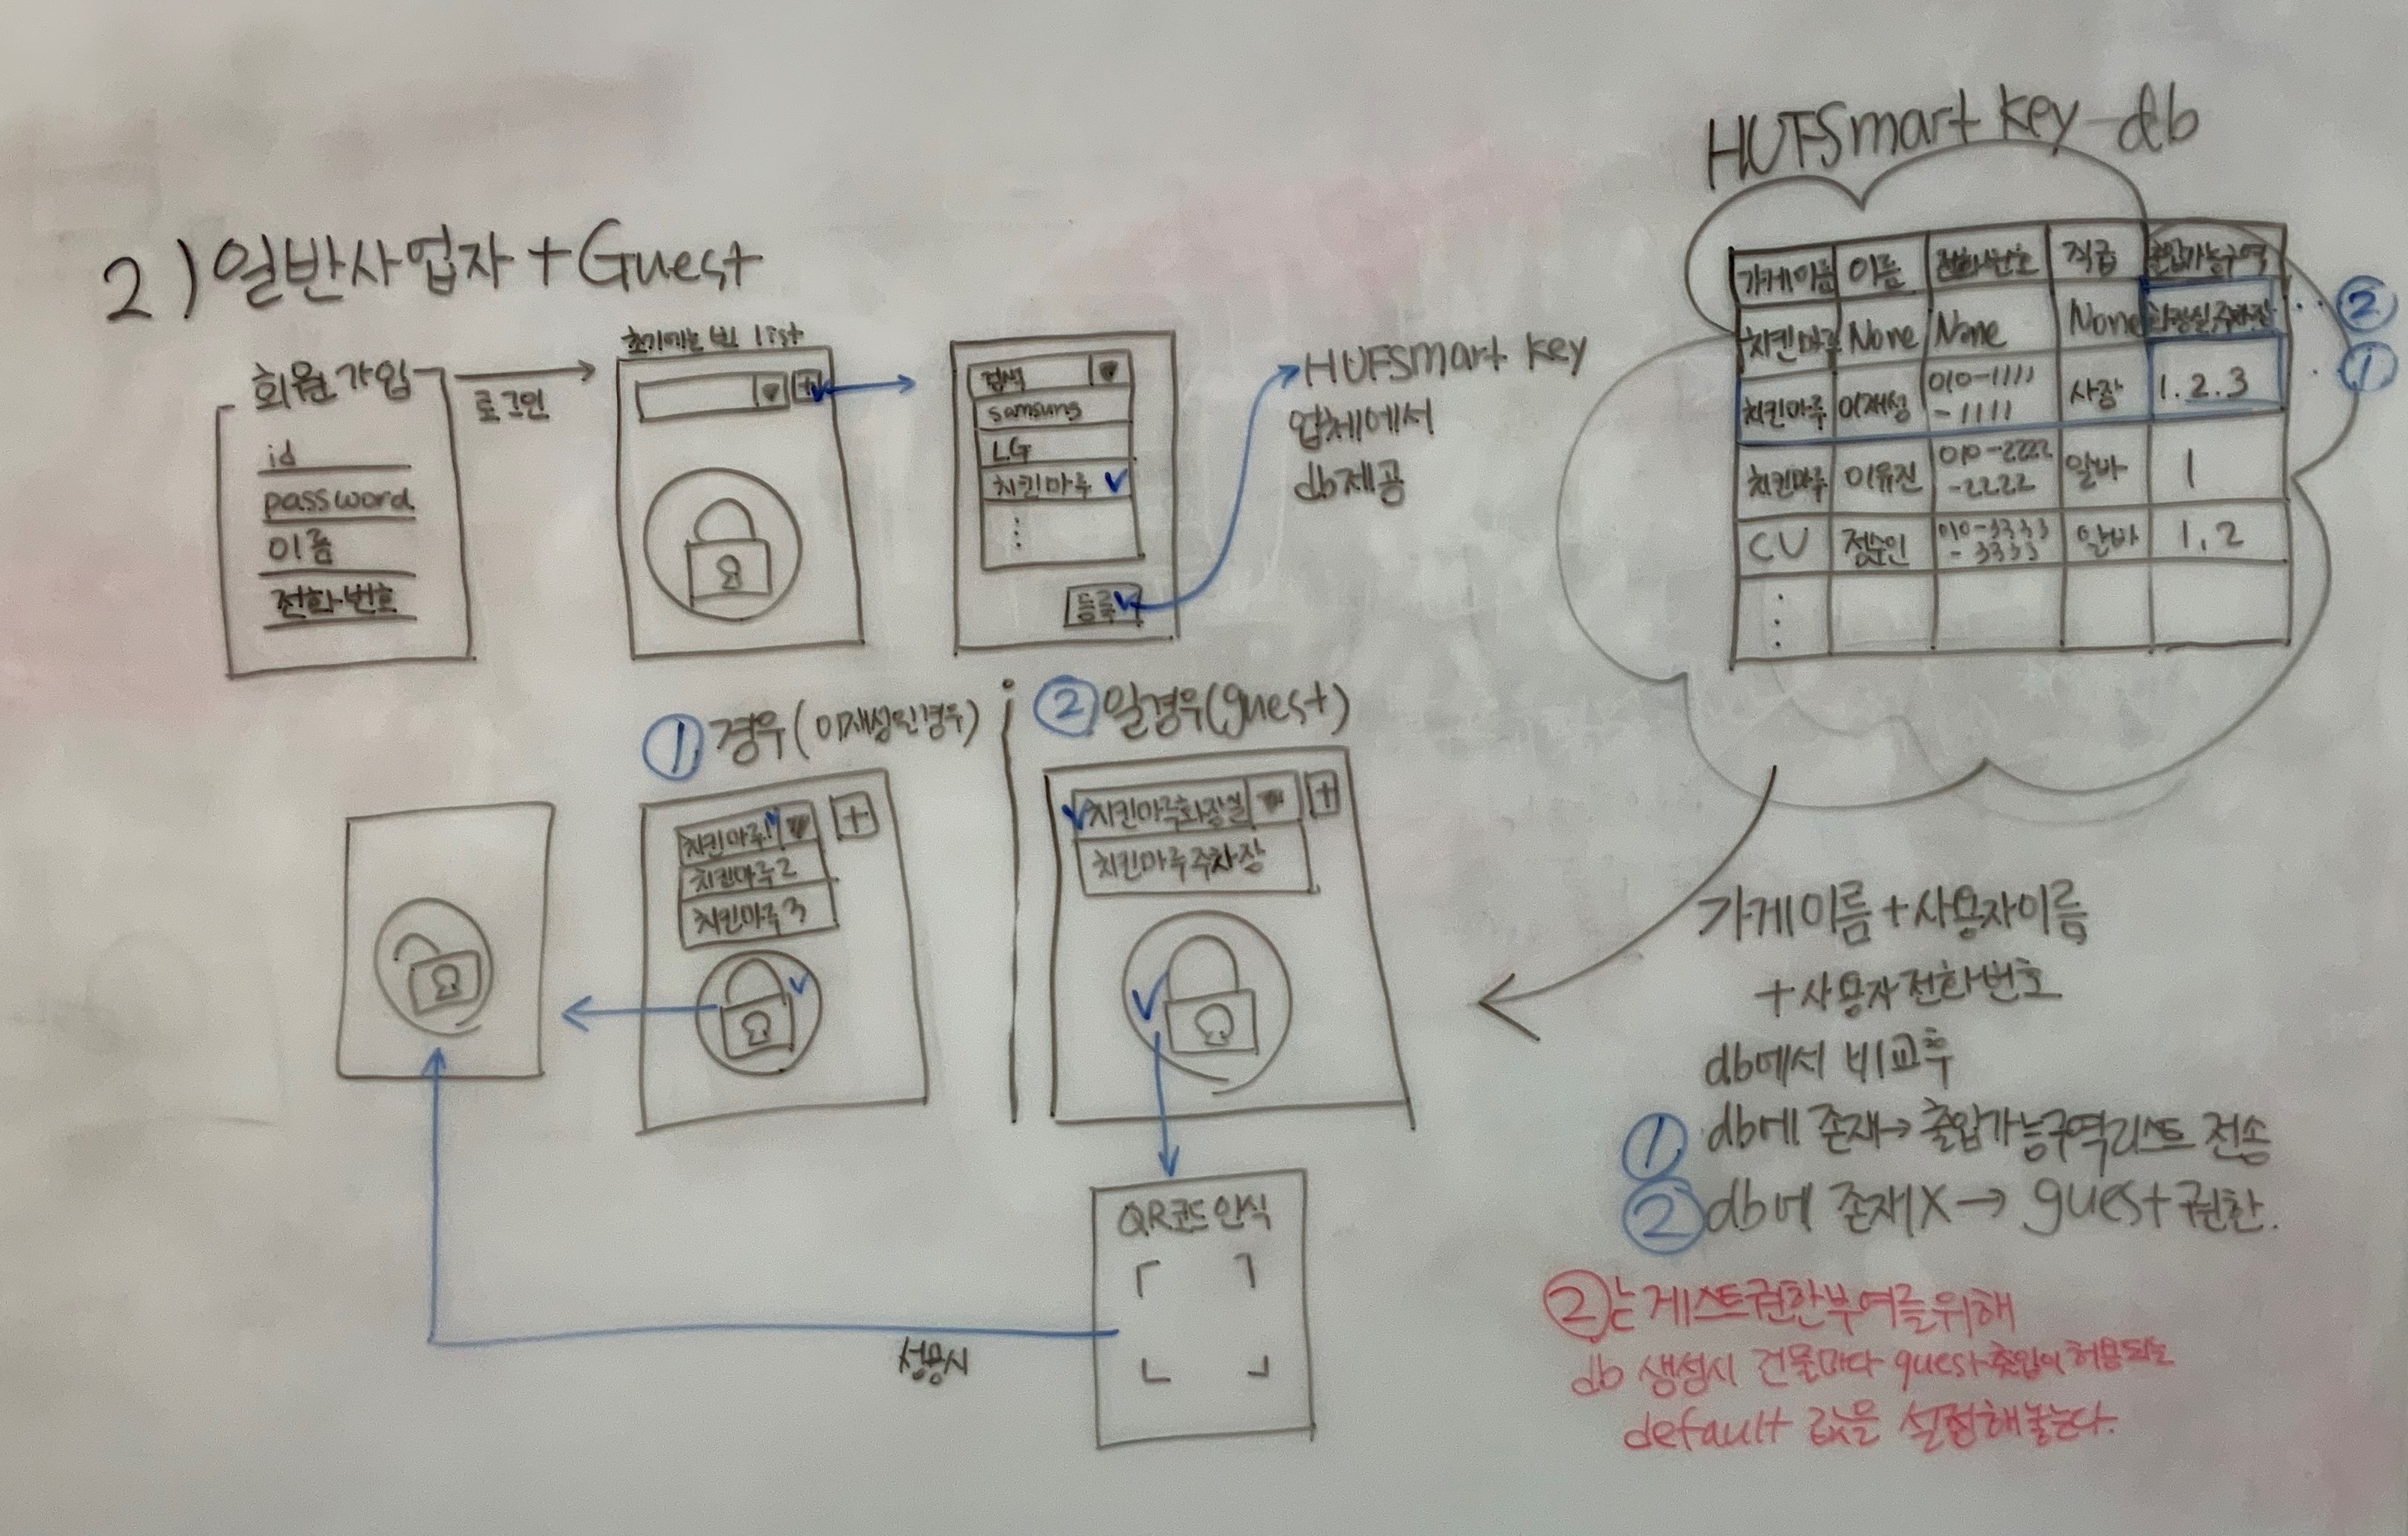 2) 일반사업자 + Guest
회원가입
id
password
이름
전화번호
로그인
초기에는 빈 list
+
검색
samsung
LG
치킨마루
⋮
등록
HUFSmart Key
업체에서
db제공
HUFSmart Key db
가게이름 이름 전화번호 직급 출입가능구역
치킨마루 None None None 화장실,주차장 ②
치킨마루 이재성 010-1111-1111 사장 1.2.3 ①
치킨마루 이유진 010-2222-2222 알바 1
CU 정승인 010-3333-3333 알바 1,2
⋮
① 경우(이재성인경우)
치킨마루1
+
치킨마루2
치킨마루3
② 일경우(guest)
치킨마루화장실
+
치킨마루주차장
QR코드 인식
성공시
가게이름+사용자이름
+사용자전화번호
db에서 비교후
① db에 존재→출입가능구역리스트 전송
② db에 존재X→ guest권한.
②는 게스트권한부여를위해
db 생성시 건물마다 guest출입이 허용되는
default 값을 설정해놓는다.